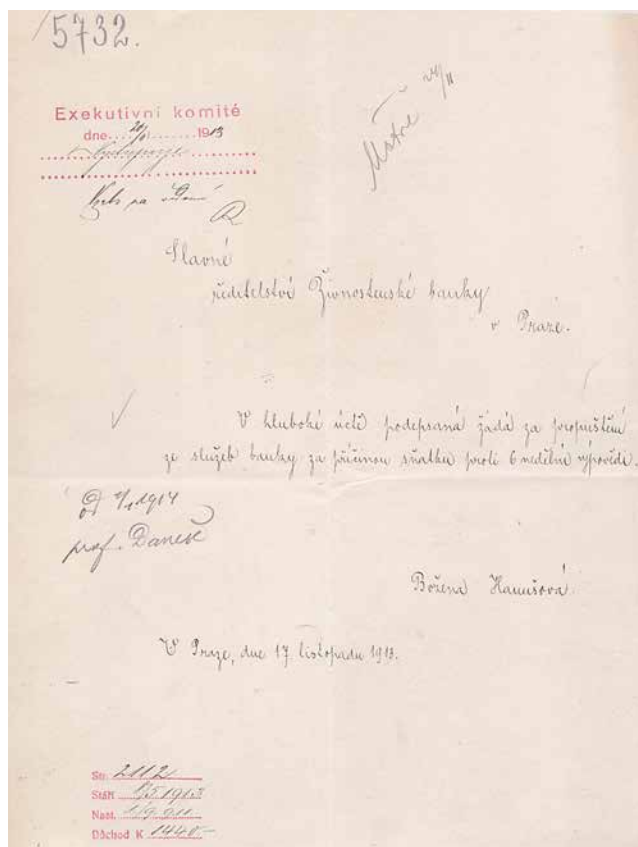 5732.
Exekutivní komité
dne 20/11 1913
24/11
Slavné
ředitelství Živnostenské banky
v Praze.
V hluboké úctě podepsaná žádá za propuštění
ze služeb banky za příčinou sňatku proti 6 nedělní výpovědi.
Od 1/1 1914
prof. Daněk
Božena Hanušová
V Praze, dne 17 listopadu 1913.
Str. 2112
Stáří 1/5 1913
Nast. 1/9 911
Důchod K 1440.-